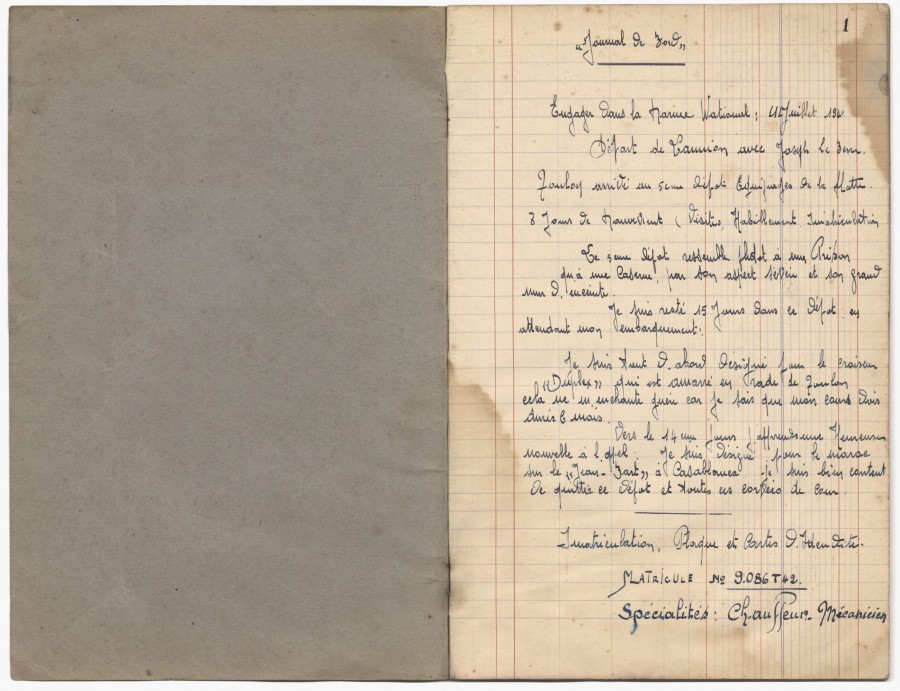 1
"Journal de Bord"
Engager dans la Marine National : Juillet 194
Départ de Lannion avec Joseph le 3eme.
Toulon arrivé au 5eme dépôt Equipages de la flotte.
8 Jours de Mouvement (Visites, Habillement, Imatriculation
Ce 5eme dépot ressemble plutot à une Prison
qu'à une Caserne, par son aspect sévère et son grand
mur d'enceinte.
Je suis resté 15 Jours dans ce Dépôt en
attendant mon embarquement.
Je suis tout d'abord désigné pour le croiseur
"Duplex" qui est amarré en rade de Toulon
cela ne m'enchante guère car je sais que mon cours dois
durer 6 mois.
Vers le 14eme jours j'apprends une Heureuse
nouvelle à l'appel. Je suis désigné pour le Maroc
sur le "Jean-Bart" à Casablanca je suis bien content
de quitter ce dépôt et toutes ces corvées de cour.
Imatriculation, Plaque et Cartes d'Identite.
MATRICULE No 9.086 T 42.
Spécialités : Chauffeur-Mécanicien